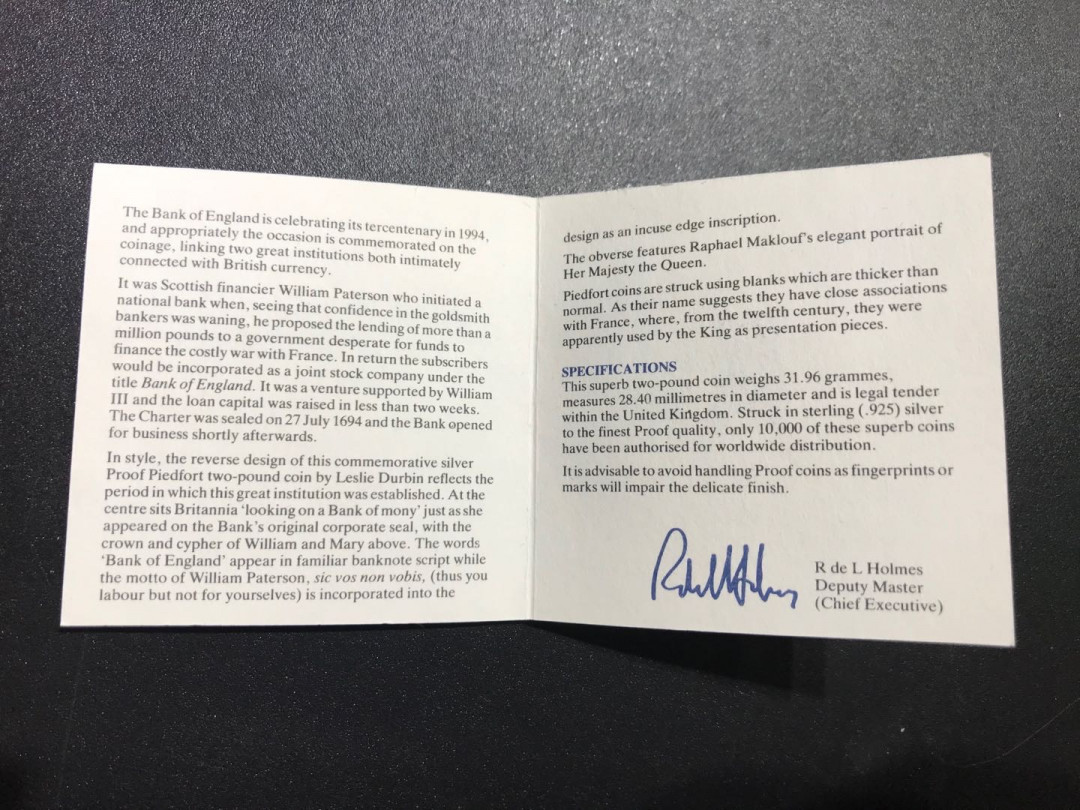 The Bank of England is celebrating its tercentenary in 1994,
and appropriately the occasion is commemorated on the
coinage, linking two great institutions both intimately
connected with British currency.
It was Scottish financier William Paterson who initiated a
national bank when, seeing that confidence in the goldsmith
bankers was waning, he proposed the lending of more than a
million pounds to a government desperate for funds to
finance the costly war with France. In return the subscribers
would be incorporated as a joint stock company under the
title Bank of England. It was a venture supported by William
III and the loan capital was raised in less than two weeks.
The Charter was sealed on 27 July 1694 and the Bank opened
for business shortly afterwards.
In style, the reverse design of this commemorative silver
Proof Piedfort two-pound coin by Leslie Durbin reflects the
period in which this great institution was established. At the
centre sits Britannia 'looking on a Bank of mony' just as she
appeared on the Bank's original corporate seal, with the
crown and cypher of William and Mary above. The words
'Bank of England' appear in familiar banknote script while
the motto of William Paterson, sic vos non vobis, (thus you
labour but not for yourselves) is incorporated into the
design as an incuse edge inscription.
The obverse features Raphael Maklouf's elegant portrait of
Her Majesty the Queen.
Piedfort coins are struck using blanks which are thicker than
normal. As their name suggests they have close associations
with France, where, from the twelfth century, they were
apparently used by the King as presentation pieces.
SPECIFICATIONS
This superb two-pound coin weighs 31.96 grammes,
measures 28.40 millimetres in diameter and is legal tender
within the United Kingdom. Struck in sterling (.925) silver
to the finest Proof quality, only 10,000 of these superb coins
have been authorised for worldwide distribution.
It is advisable to avoid handling Proof coins as fingerprints or
marks will impair the delicate finish.
R de L Holmes
Deputy Master
(Chief Executive)